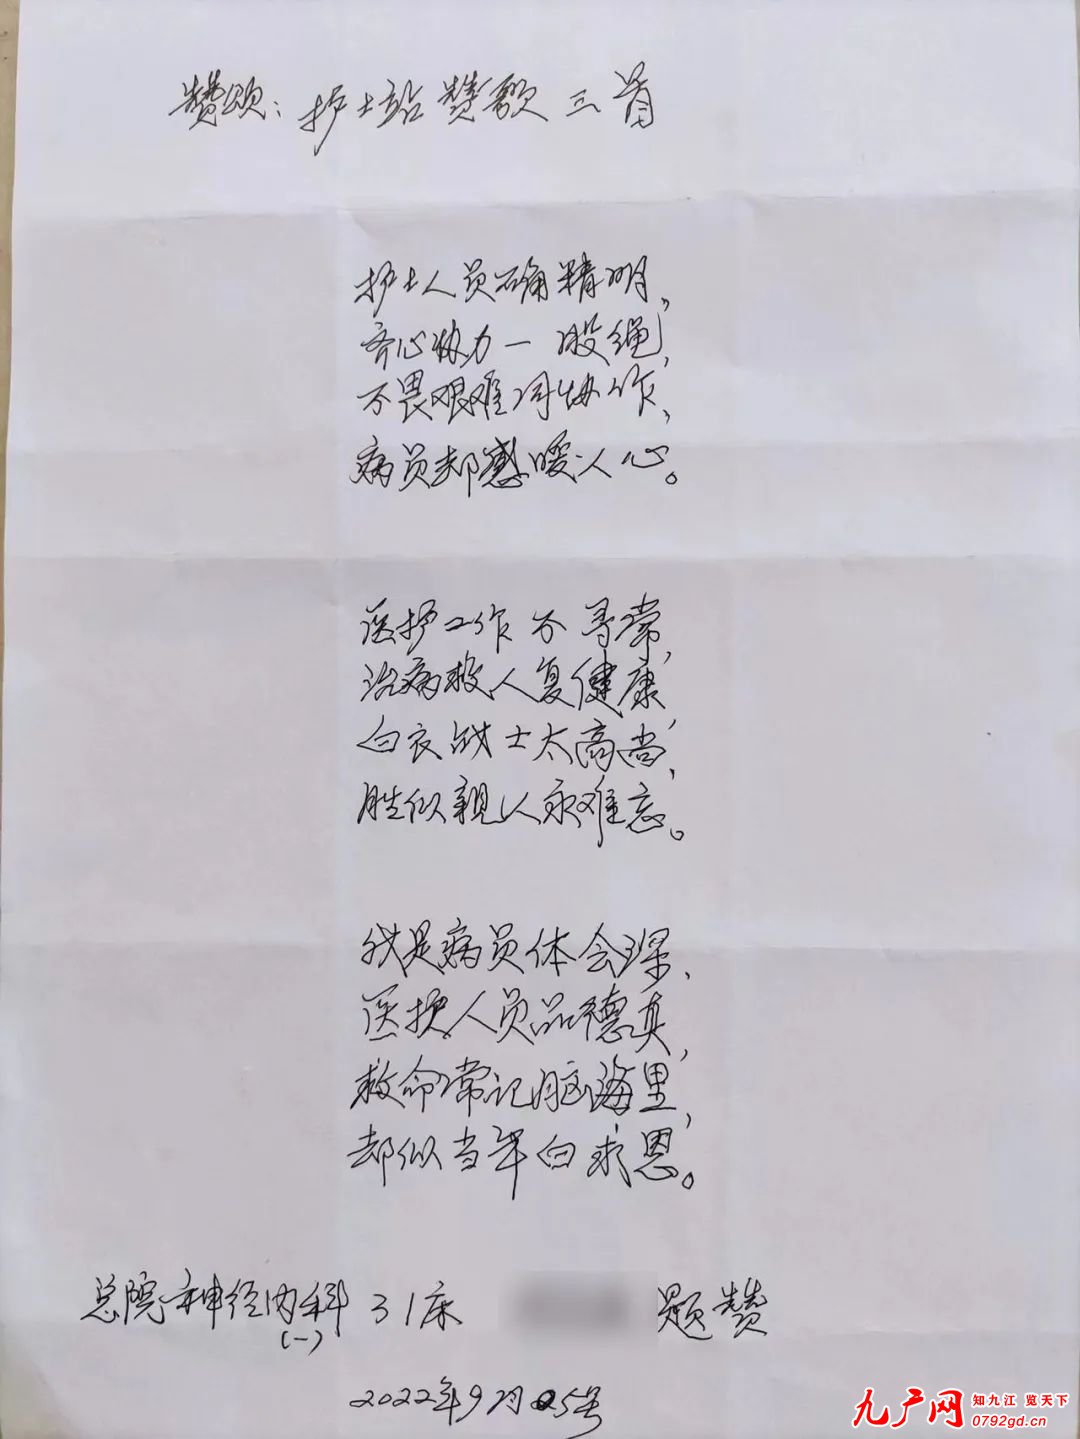 赞颂：护士站赞歌三首
护士人员确精明，
齐心协力一股绳，
不畏艰难同协作，
病员都感暖人心。
医护工作不寻常，
治病救人复健康，
白衣战士太高尚，
胜似親人永难忘。
我是病员体会深、
医护人员品德真，
救命常记脑海里，
却似当年白求恩。
总院神经内科31床 题赞
(一)
2022年9月25号
九广网
知九江 览天下
0792gd.cn